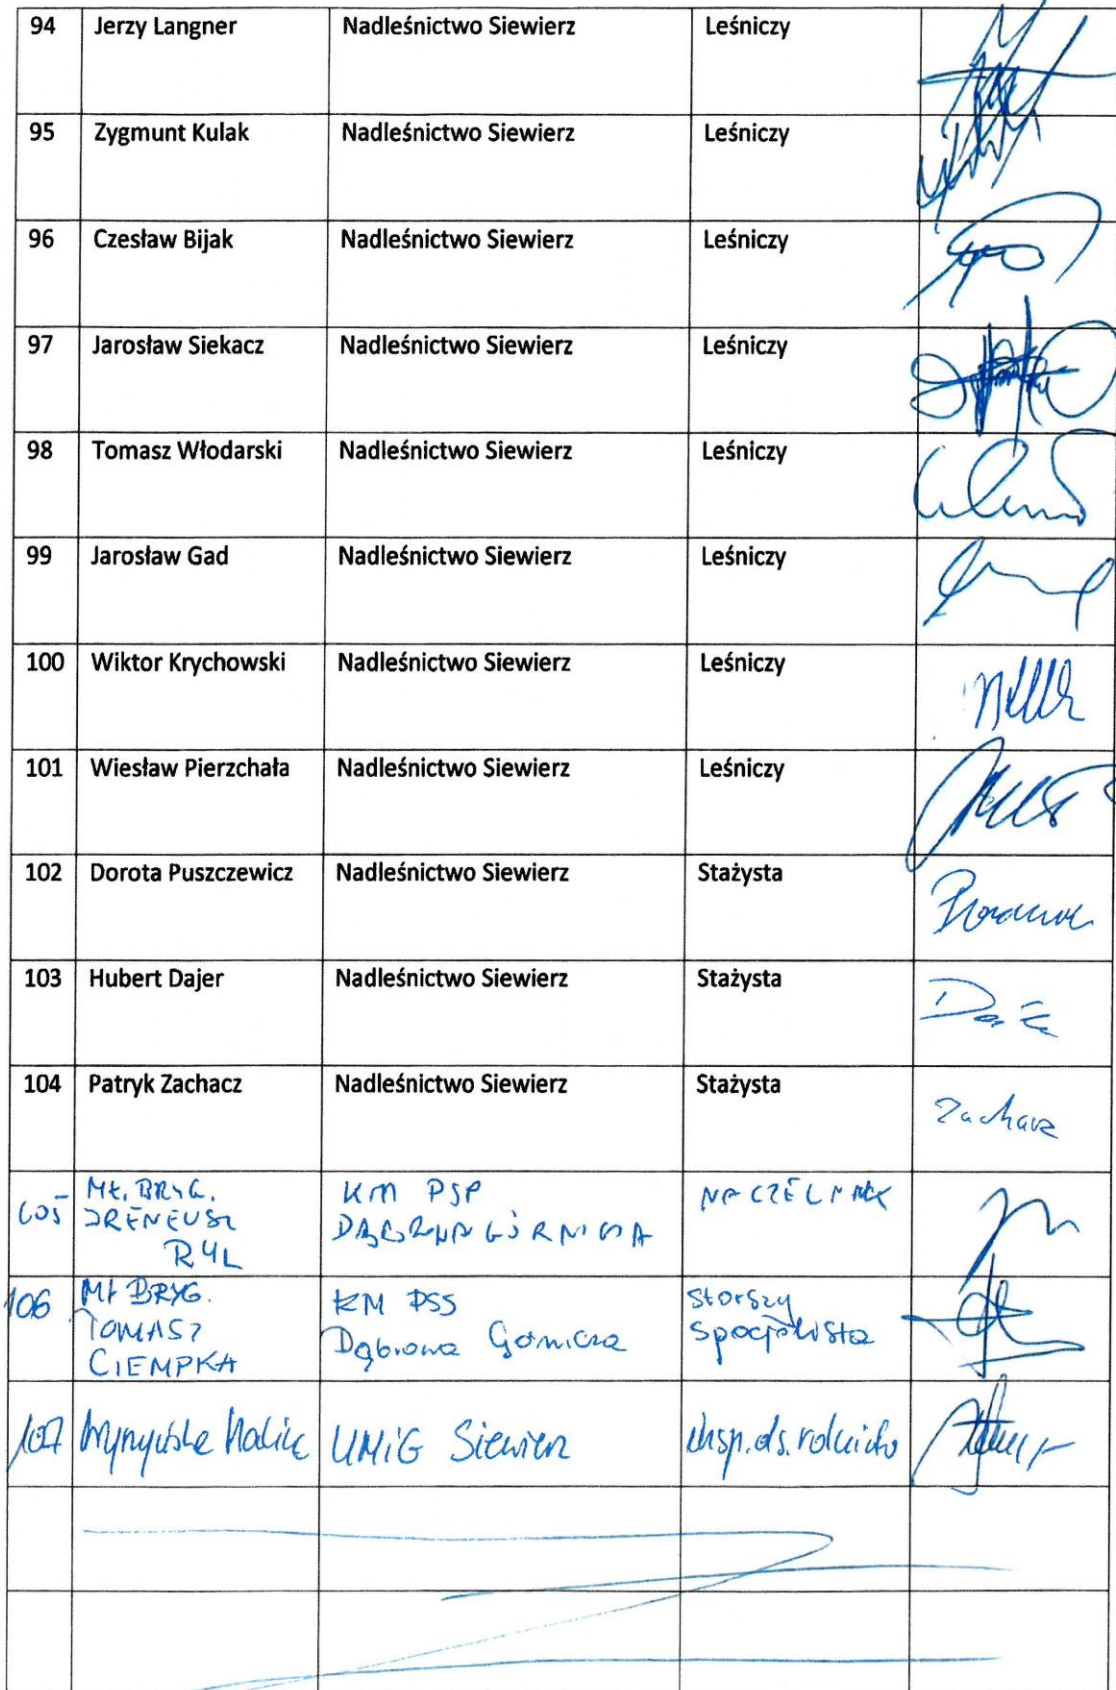 94 Jerzy Langner Nadleśnictwo Siewierz Leśniczy
95 Zygmunt Kulak Nadleśnictwo Siewierz Leśniczy
96 Czesław Bijak Nadleśnictwo Siewierz Leśniczy
97 Jarosław Siekacz Nadleśnictwo Siewierz Leśniczy
98 Tomasz Włodarski Nadleśnictwo Siewierz Leśniczy
99 Jarosław Gad Nadleśnictwo Siewierz Leśniczy
100 Wiktor Krychowski Nadleśnictwo Siewierz Leśniczy
101 Wiesław Pierzchała Nadleśnictwo Siewierz Leśniczy
102 Dorota Puszczewicz Nadleśnictwo Siewierz Stażysta
103 Hubert Dajer Nadleśnictwo Siewierz Stażysta
104 Patryk Zachacz Nadleśnictwo Siewierz Stażysta
Zachacz
105 Mł. BRYG. KM PSP NACZELNIK
IRENEUSZ DĄBROWA GÓRNICZA
RYL
106 Mł BRYG. KM PSS Starszy
TOMASZ Dąbrowa Górnicza Specjalista
CIEMPKA
107 UMiG Siewierz insp. ds.